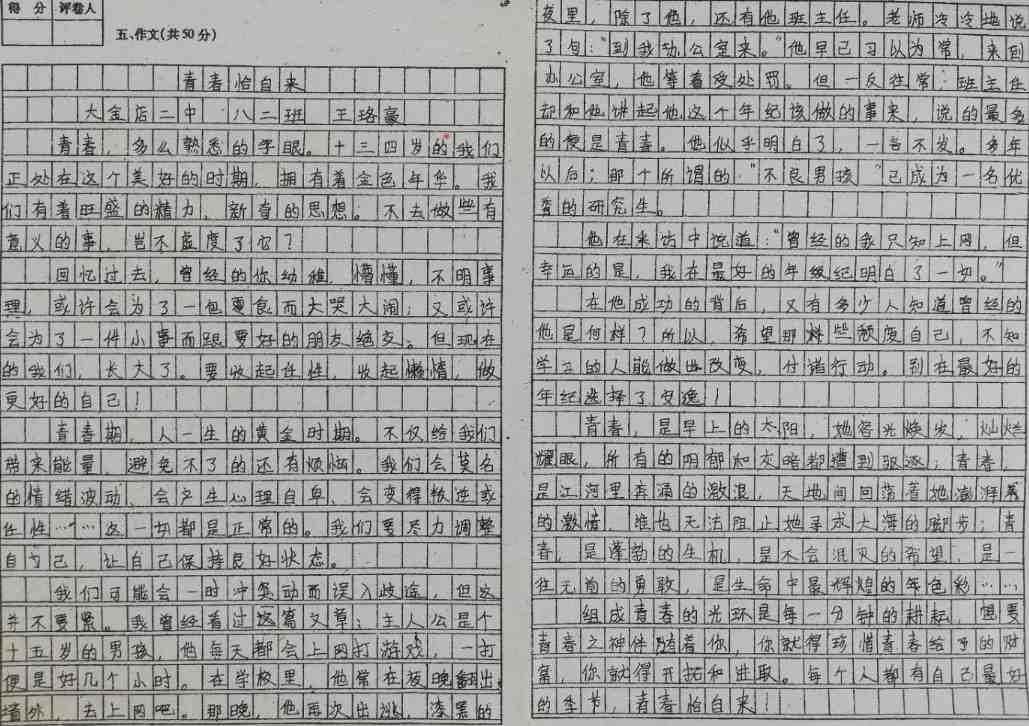 得 分 评卷人
五、作文(共50分)
青春恰自来
大金店二中 八二班 王珞豪
青春，多么熟悉的字眼。十三四岁的我们
正处在这个美好的时期，拥有着金色年华。我
们有着旺盛的精力，新奇的思想。不去做些有
意义的事，岂不虚度了它？
回忆过去，曾经的你幼稚，懵懂，不明事
理，或许会为了一包零食而大哭大闹；又或许
会为了一件小事而跟要好的朋友绝交。但现在
的我们，长大了。要收起任性，收起懒惰，做
更好的自己！
青春期，人一生的黄金时期。不仅给我们
带来能量，避免不了的还有烦恼。我们会莫名
的情绪波动，会产生心理自卑，会变得叛逆或
任性……这一切都是正常的。我们要尽力调整
自己，让自己保持良好状态。
我们可能会一时冲动而误入歧途，但这
并不要紧。我曾经看过这篇文章：主人公是个
十五岁的男孩，他每天都会上网打游戏，一打
便是好几个小时。在学校里，他常在夜晚翻出
墙外，去上网吧。那晚，他再次出逃，漆黑的
夜里，除了他，还有他班主任。老师冷冷地说
了句：“到我办公室来。”他早已习以为常，来到
办公室，他等着受处罚。但一反往常，班主任
却和他讲起他这个年纪该做的事来，说的最多
的便是青春。他似乎明白了，一言不发。多年
以后；那个所谓的“不良男孩”已成为一名优
秀的研究生。
他在采访中说道：“曾经的我只知上网，但
幸运的是，我在最好的年级纪明白了一切。”
在他成功的背后，又有多少人知道曾经的
他是何样？所以，希望那些颓废自己，不知
学习的人能做出改变，付诸行动。别在最好的
年纪选择了安逸！
青春，是早上的太阳，她容光焕发，灿烂
耀眼，所有的阴郁和灰暗都遭到驱逐；青春，
是江河里奔涌的激浪，天地间回荡着她澎湃着
的激情，谁也无法阻止她寻求大海的脚步；青
春，是蓬勃的生机，是不会泯灭的希望，是一
往无前的勇敢，是生命中最辉煌的年色彩……
组成青春的光环是每一分钟的耕耘，想要
青春之神伴随着你，你就得珍惜青春给予的财
富，你就得开拓和进取。每个人都有自己最好
的季节，青春恰自来！